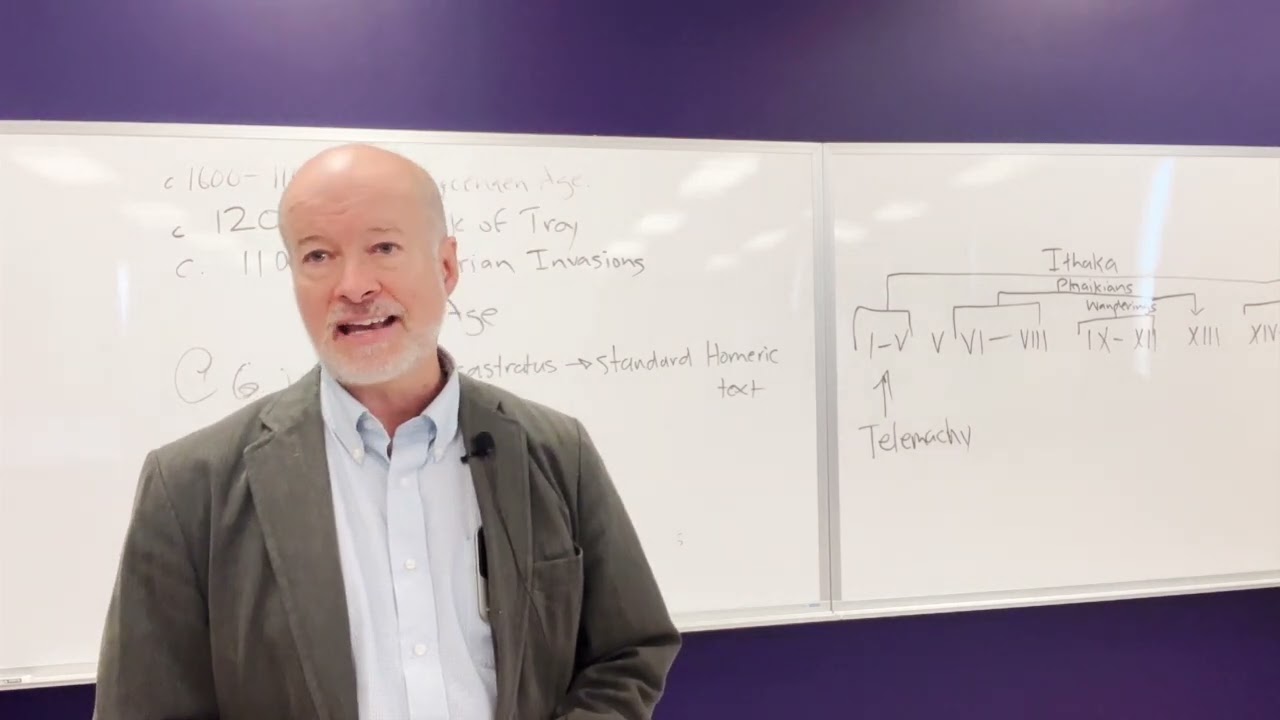 c 1600-11 Age.
c 120 k of Troy
c. 110 rian Invasions
Age
C 6 sastratus → Standard Homeric
text
Ithaka
Phaikians
Wanderings
I-V V VI-VIII IX-XII XIII XIV
Telemachy